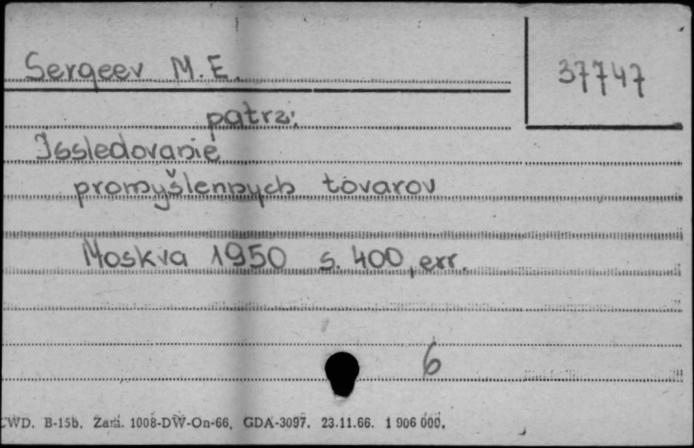 Sergeev M.E.
37747
patrz:
Issledovanie
promyšlennych tovarov
Moskva 1950 s. 400, err.
6
CWD. B-15b. Zam. 1008-DW-On-66. GDA-3097. 23.11.66. 1 906 000.